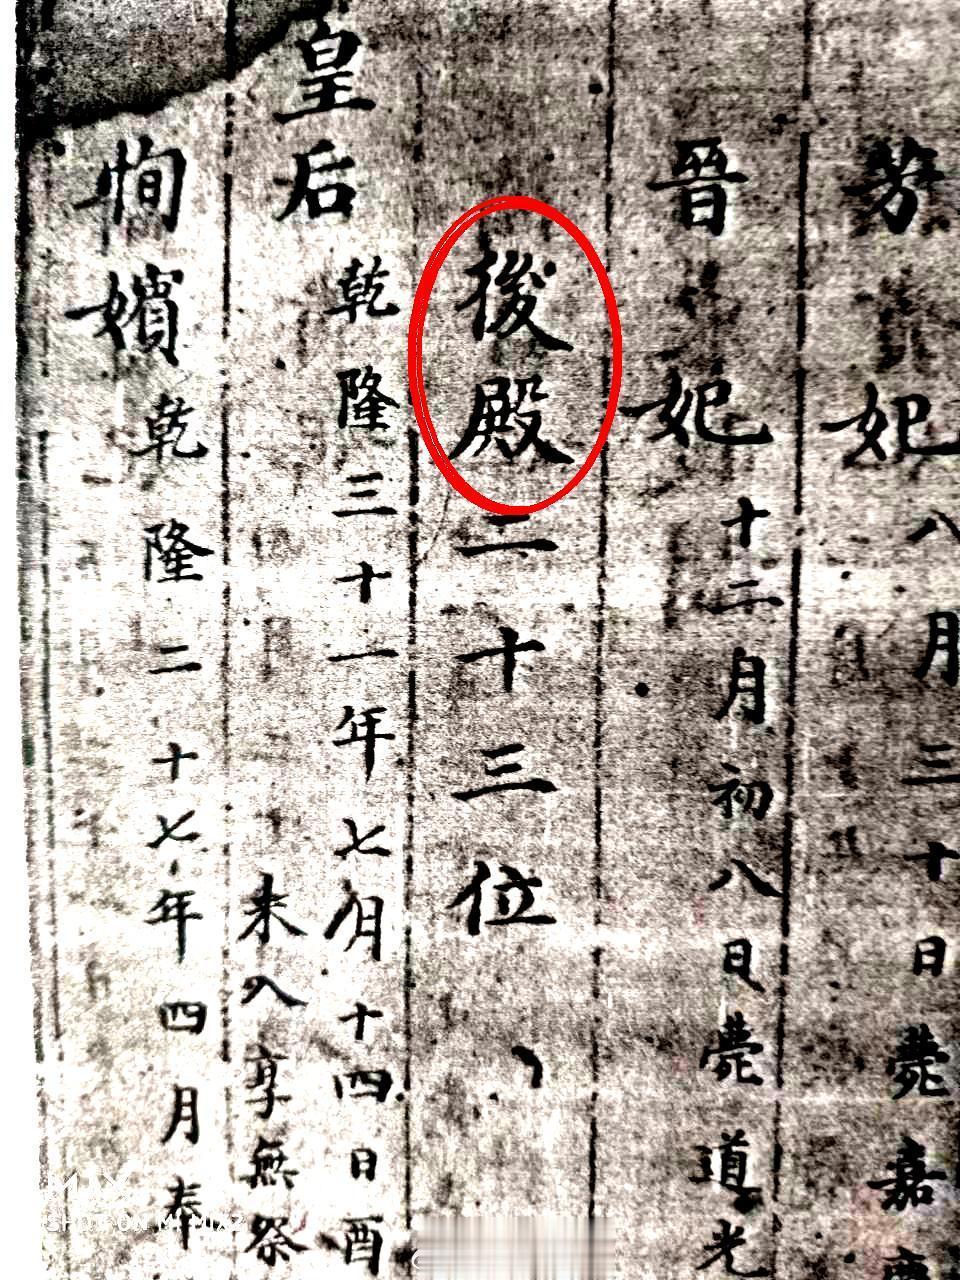 芳妃八月三十日薨嘉
晉妃十二月初八日薨道光
後殿二十三位
皇后乾隆三十一年七月十四日酉
未入享無祭
恂嬪乾隆二十七年四月奉
SHOT ON MI MIX2